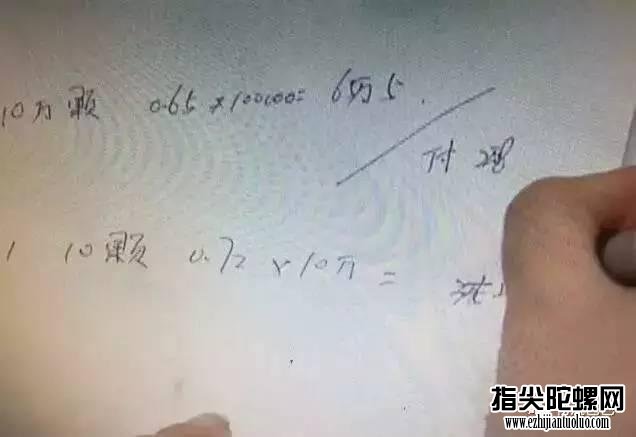 10万颗 0.65×100000= 6万5.
付现
10颗 0.72×10万=
指尖陀螺网
www.ezhijiantuoluo.com